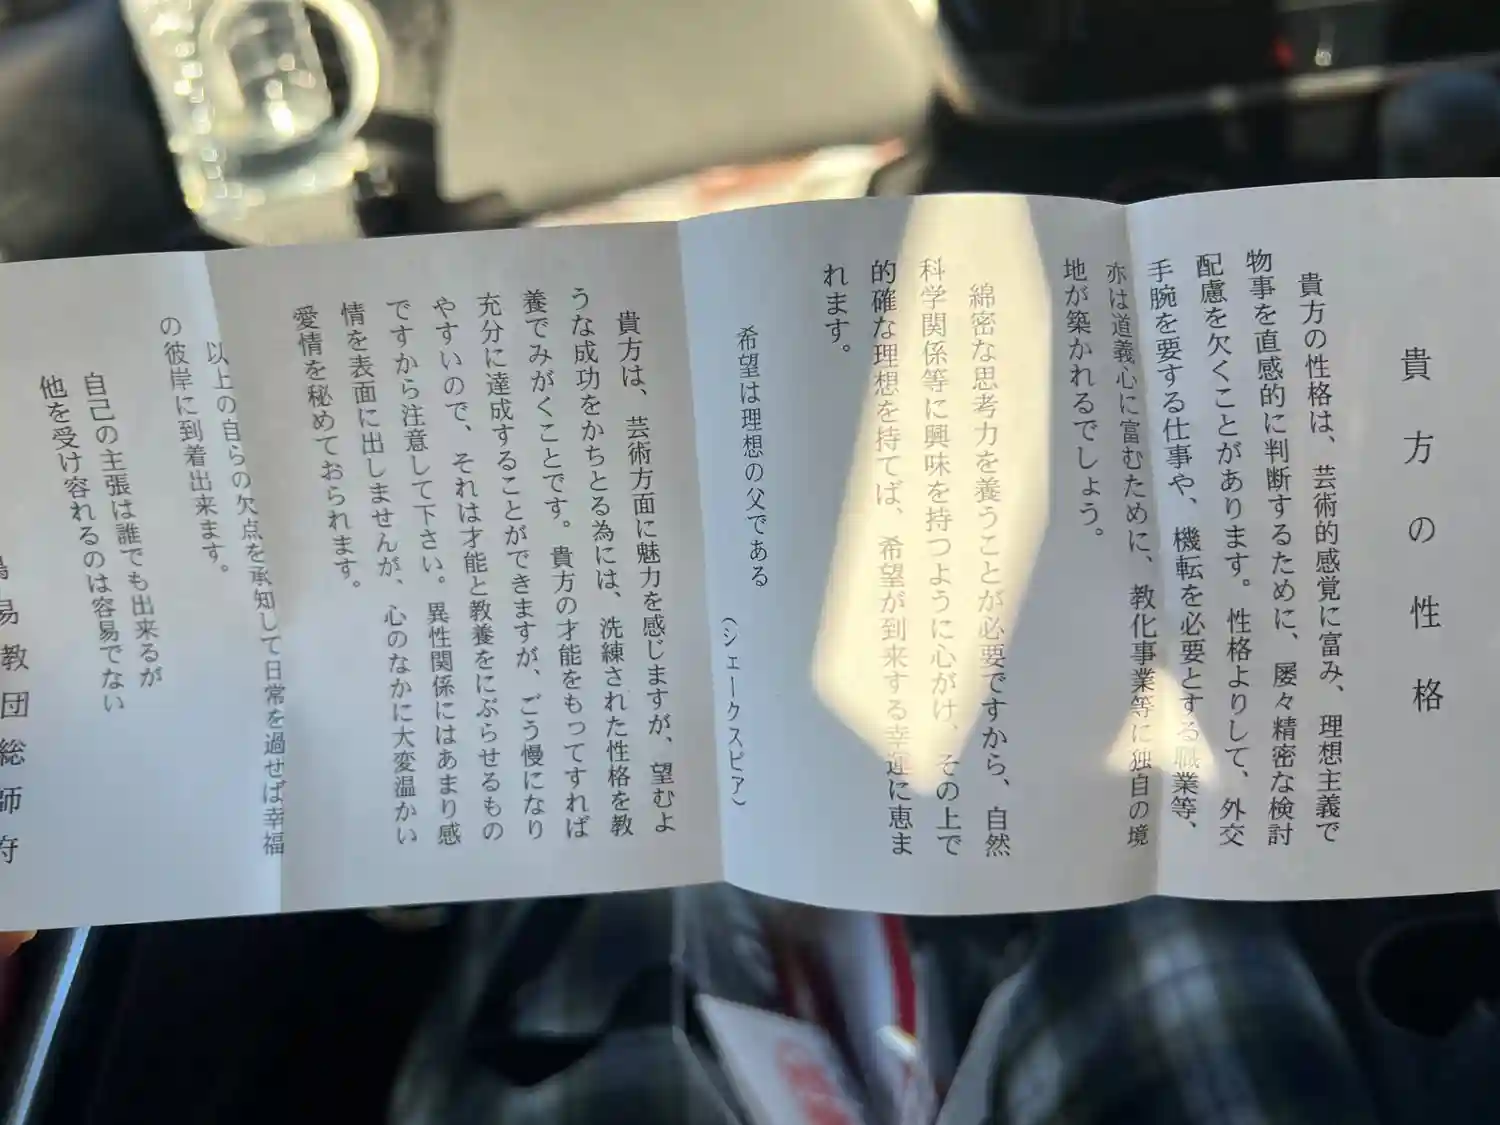 貴方の性格
貴方の性格は、芸術的感覚に富み、理想主義で
物事を直感的に判断するために、屡々精密な検討
配慮を欠くことがあります。性格よりして、外交
手腕を要する仕事や、機転を必要とする職業等、
亦は道義心に富むために、教化事業等に独自の境
地が築かれるでしょう。
綿密な思考力を養うことが必要ですから、自然
科学関係等に興味を持つように心がけ、その上で
的確な理想を持てば、希望が到来する幸運に恵ま
れます。
希望は理想の父である
(シェークスピア)
貴方は、芸術方面に魅力を感じますが、望むよ
うな成功をかちとる為には、洗練された性格を教
養でみがくことです。貴方の才能をもってすれば
充分に達成することができますが、ごう慢になり
やすいので、それは才能と教養をにぶらせるもの
ですから注意して下さい。異性関係にはあまり感
情を表面に出しませんが、心のなかに大変温かい
愛情を秘めておられます。
以上の自らの欠点を承知して日常を過せば幸福
の彼岸に到着出来ます。
自己の主張は誰でも出来るが
他を受け容れるのは容易でない
易教団総師府